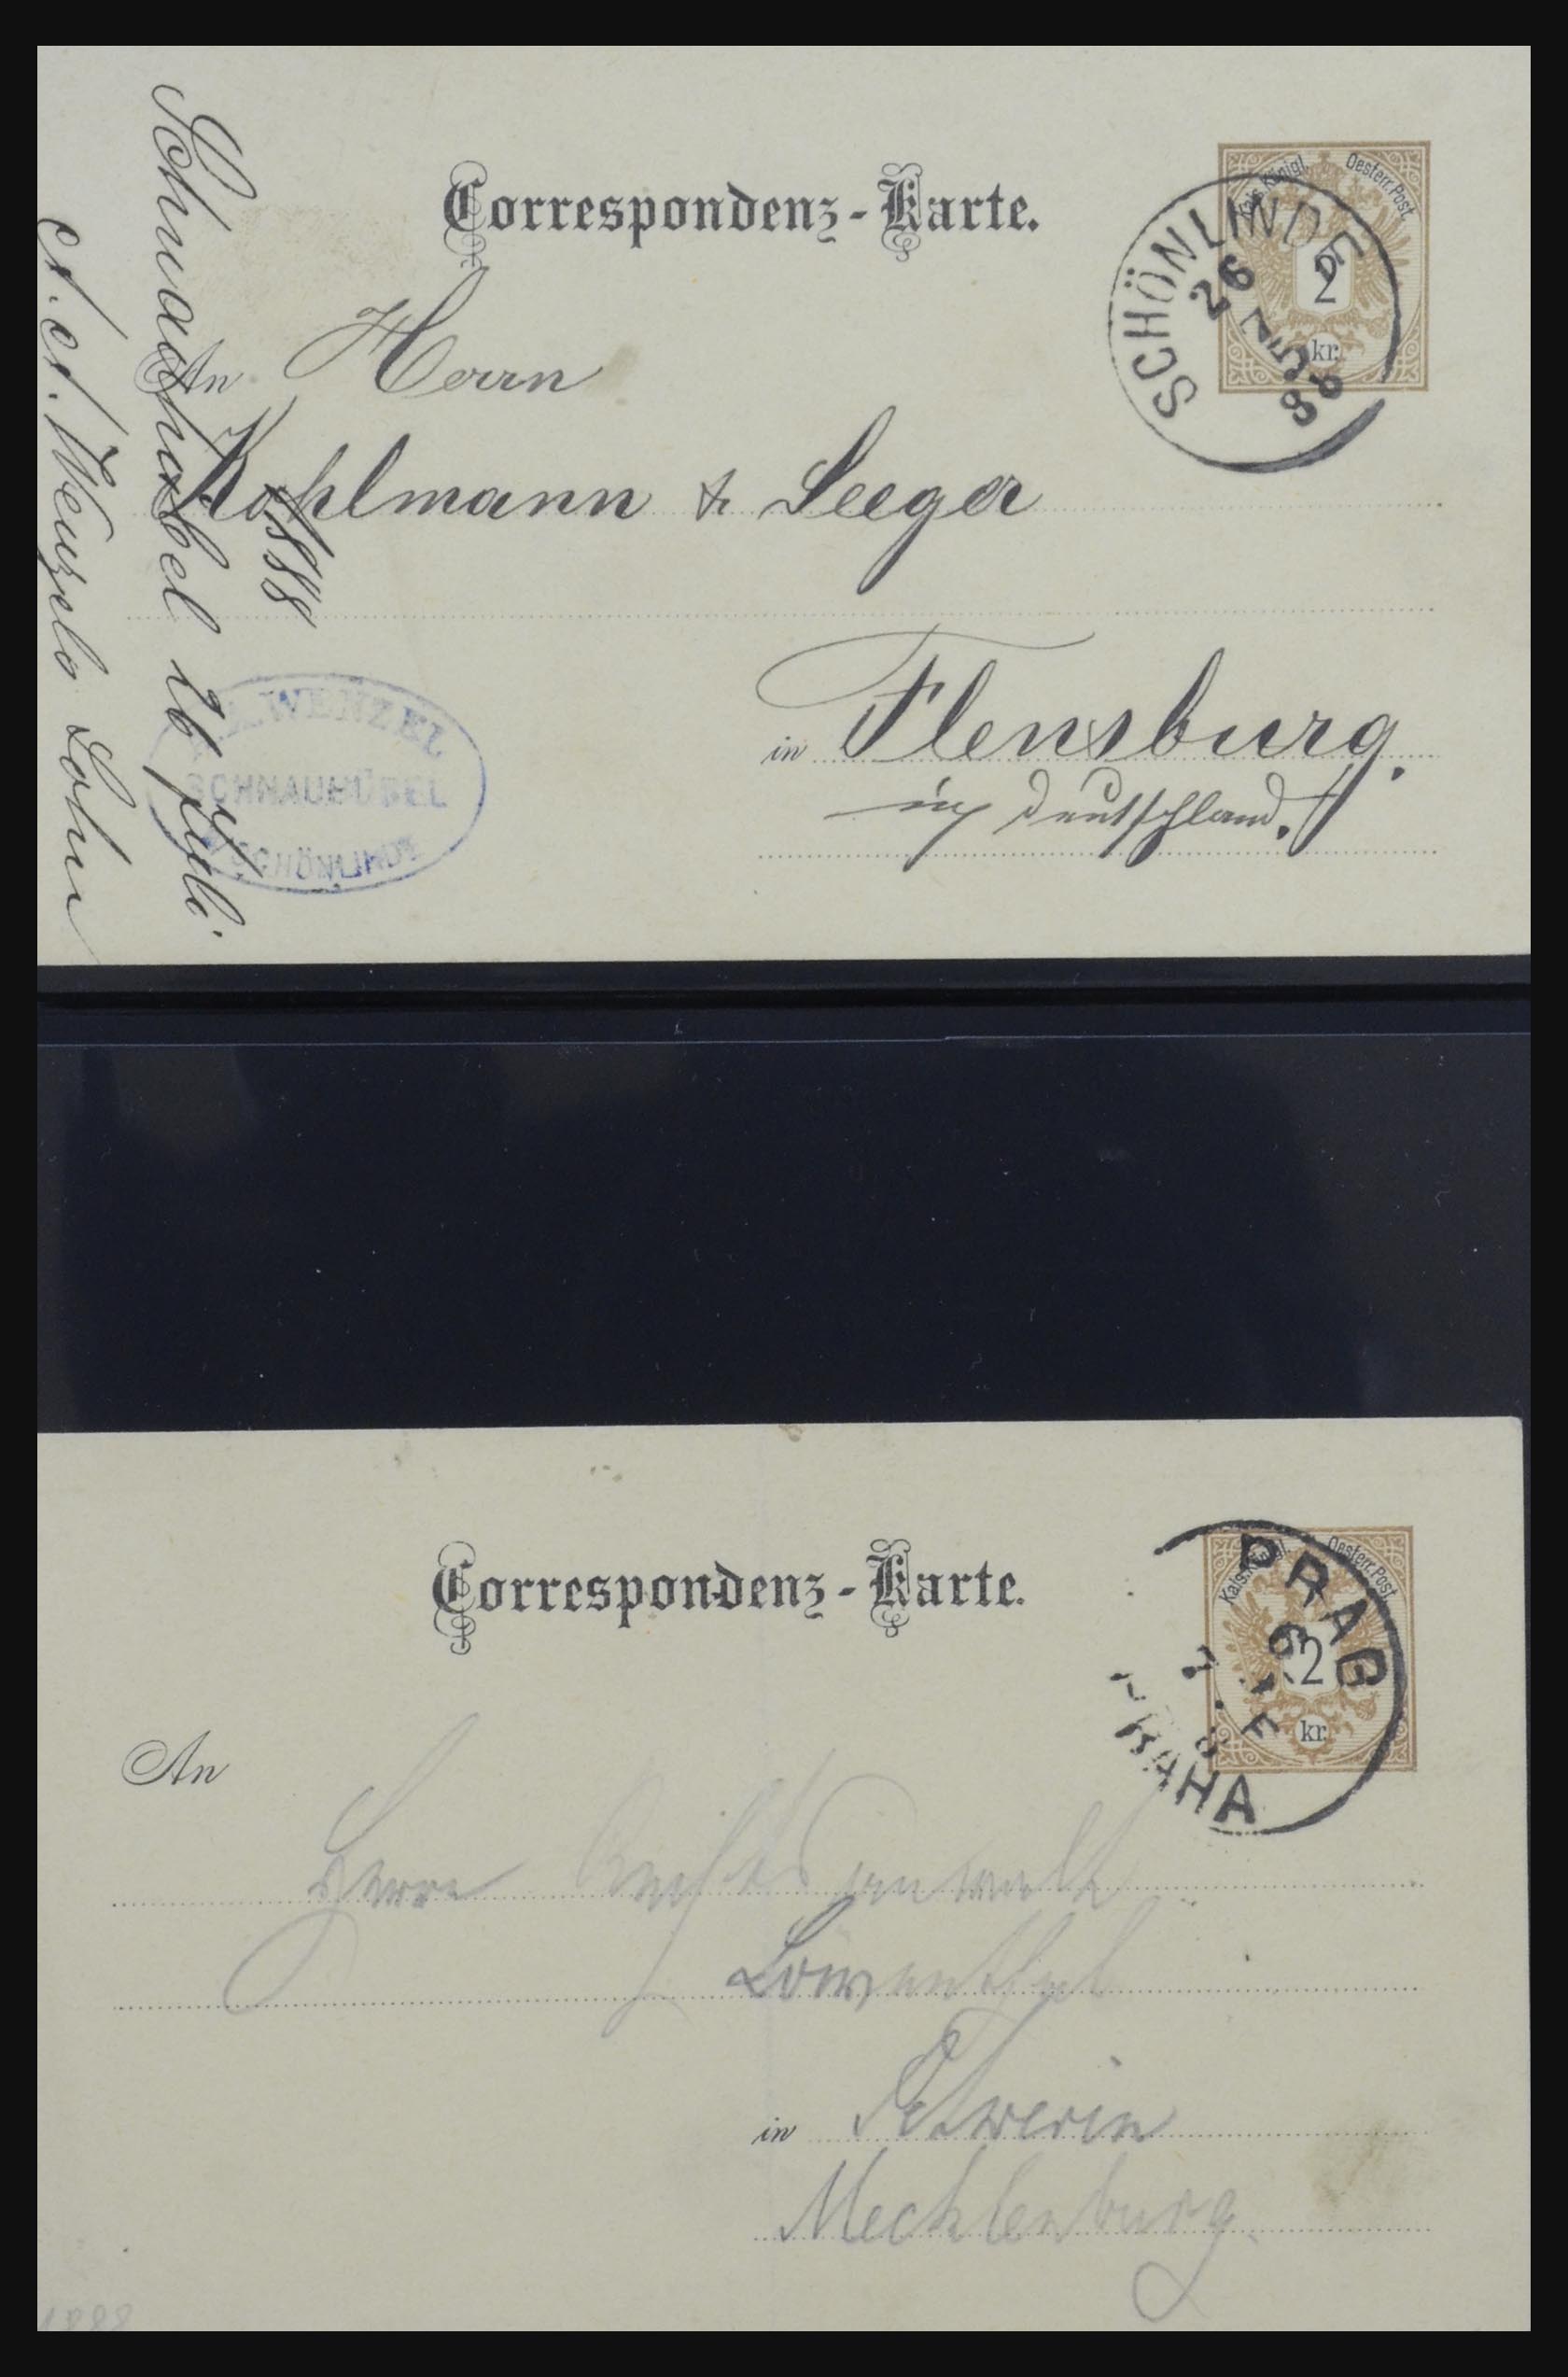 Correspondenz-Karte.
Kais. Königl. Oesterr. Post.
2
kr.
SCHÖNLINDE
26 7 88
An Herrn
Kohlmann & Seeger
in Flensburg.
in Deutschland.
Schnauhübel 26 Juli
1888
A. A. Wenzels Sohn
A. WENZEL
SCHNAUHÜBEL
SCHÖNLINDE
Correspondenz-Karte.
Kais. Königl. Oesterr. Post.
2
kr.
PRAG
PRAHA
An
Herrn Rechtsanwalt
Löwenthal
in Schwerin
Mecklenburg.
1888